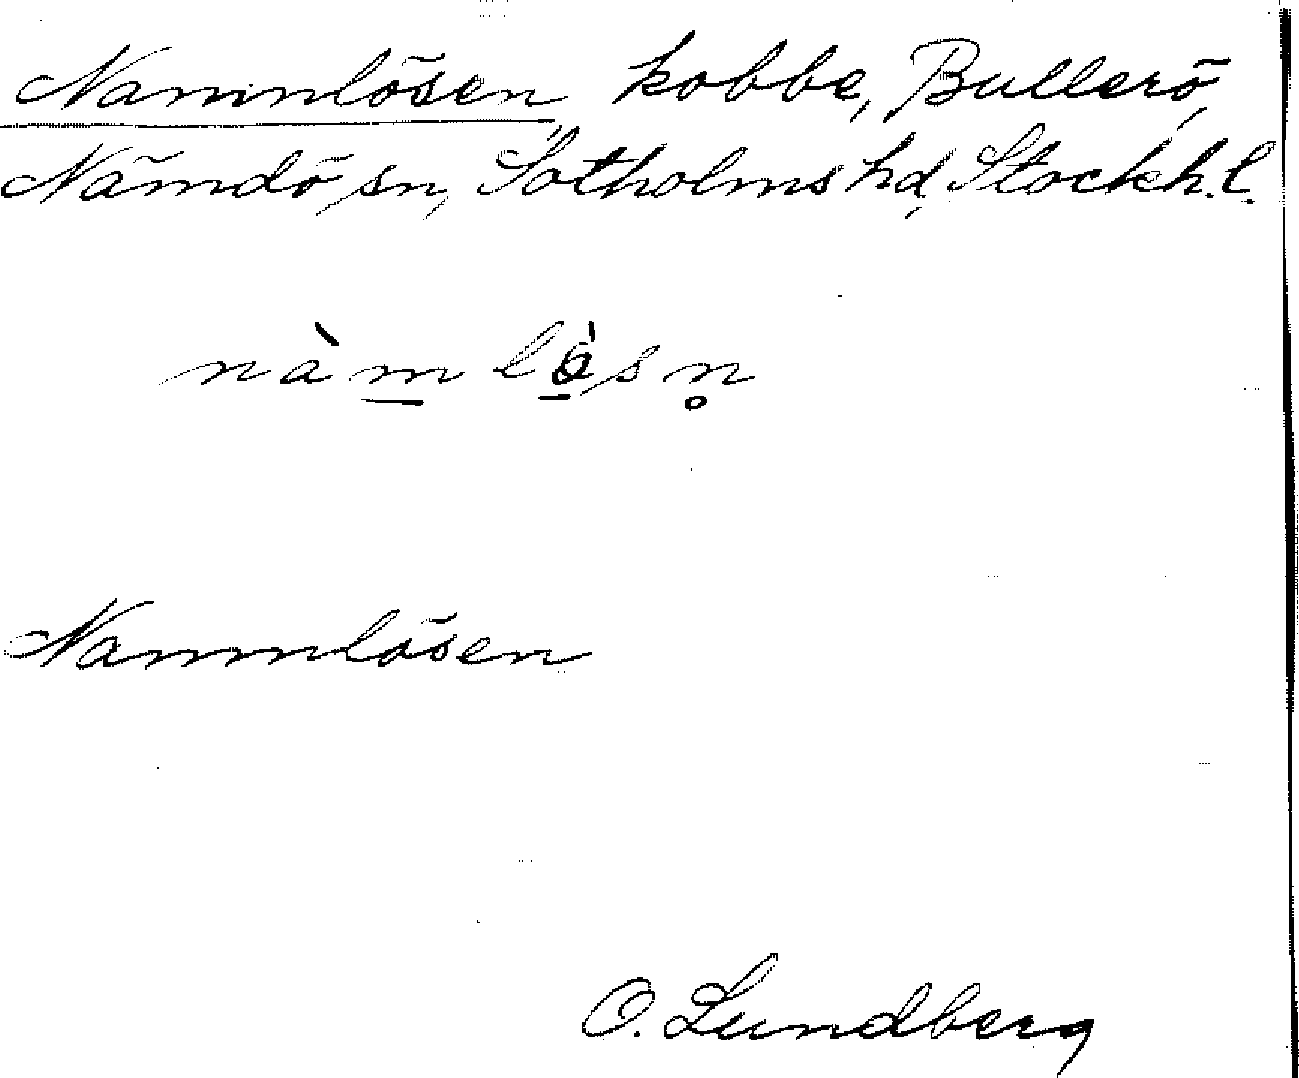 Namnlösen, kobbe, Bullerö,
Nämdö sn, Sotholms hd, Stockh. l.
nàmlö̀sn̥
Namnlösen
O. Lundberg